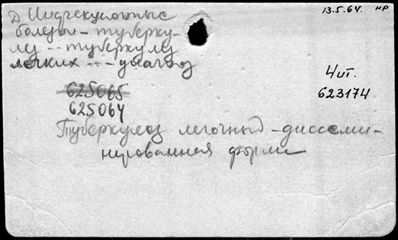 Д Инфекционные
болезни - туберку-
лез -- туберкулез
легких -- диагноз
13.5.64. нр
Чит.
623174
625065
625064
Туберкулез легочный - диссеми-
нированная форма